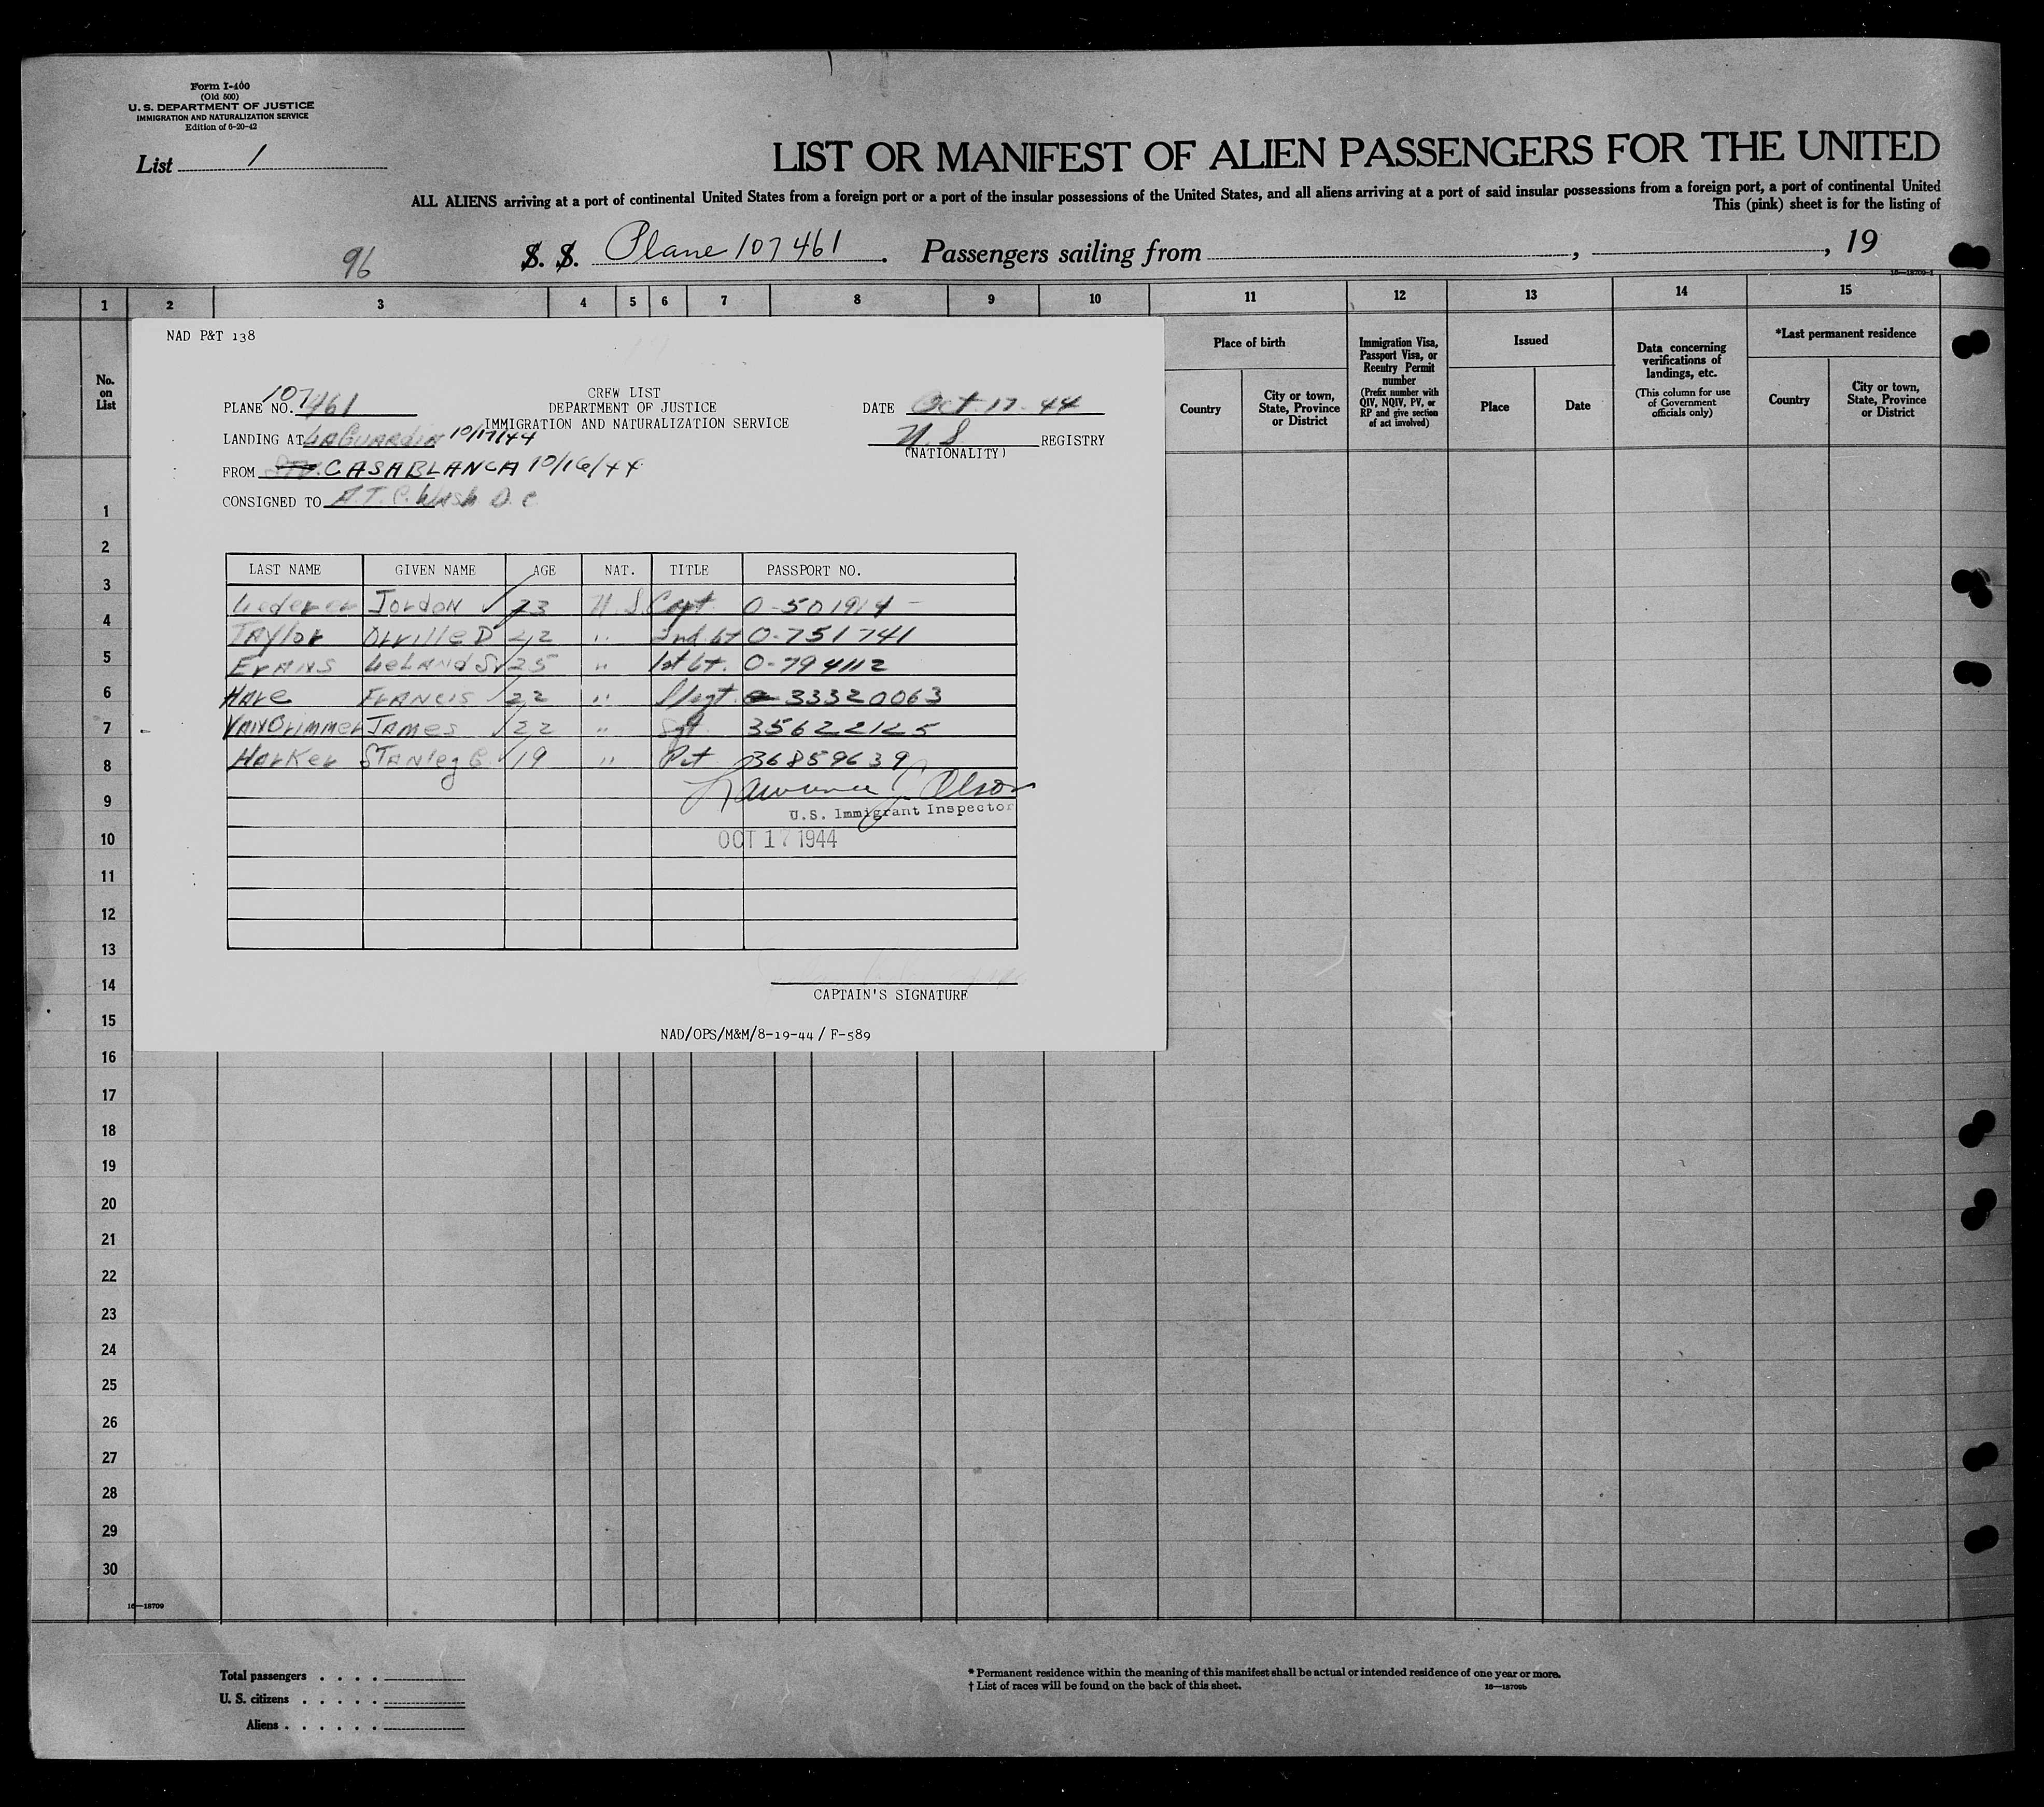 Form I-400
(Old 500)
U. S. DEPARTMENT OF JUSTICE
IMMIGRATION AND NATURALIZATION SERVICE
Edition of 6-20-42
List 1
LIST OR MANIFEST OF ALIEN PASSENGERS FOR THE UNITED
ALL ALIENS arriving at a port of continental United States from a foreign port or a port of the insular possessions of the United States, and all aliens arriving at a port of said insular possessions from a foreign port, a port of continental United
This (pink) sheet is for the listing of
96 S. S. Plane 107461. Passengers sailing from , , 19
1 2 3 4 5 6 7 8 9 10 11 12 13 14 15
No. on List
Place of birth
Country
City or town, State, Province or District
Immigration Visa, Passport Visa, or Reentry Permit number
(Prefix number with QIV, NQIV, PV, or RP and give section of act involved)
Issued
Place
Date
Data concerning verifications of landings, etc.
(This column for use of Government officials only)
*Last permanent residence
Country
City or town, State, Province or District
NAD P&T 138
CREW LIST
DEPARTMENT OF JUSTICE
IMMIGRATION AND NATURALIZATION SERVICE
PLANE NO. 107461
DATE Oct. 17. 44
LANDING AT LAGUARDIA 10/17/44
U S REGISTRY
(NATIONALITY)
FROM CASABLANCA 10/16/44
CONSIGNED TO A.T.C. Wash D.C
LAST NAME GIVEN NAME AGE NAT. TITLE PASSPORT NO.
Lederer Jordon 23 U.S. Capt. 0-501914
Taylor Orville D 22 " 2nd Lt 0-751741
EVANS LeLAND S 25 " 1st Lt. 0-794112
HARE FRANCIS 22 " S/sgt. 33320063
JAMES 22 " Sgt 35622125
Harker Stanley 19 " Pvt 36859639
Lawrence J Olson
U.S. Immigrant Inspector
OCT 17 1944
CAPTAIN'S SIGNATURE
NAD/OPS/M&M/8-19-44 / F-589
1
2
3
4
5
6
7
8
9
10
11
12
13
14
15
16
17
18
19
20
21
22
23
24
25
26
27
28
29
30
16—18709
Total passengers . . . .
U. S. citizens . . . . .
Aliens . . . . . .
* Permanent residence within the meaning of this manifest shall be actual or intended residence of one year or more.
† List of races will be found on the back of this sheet.
16—18709b